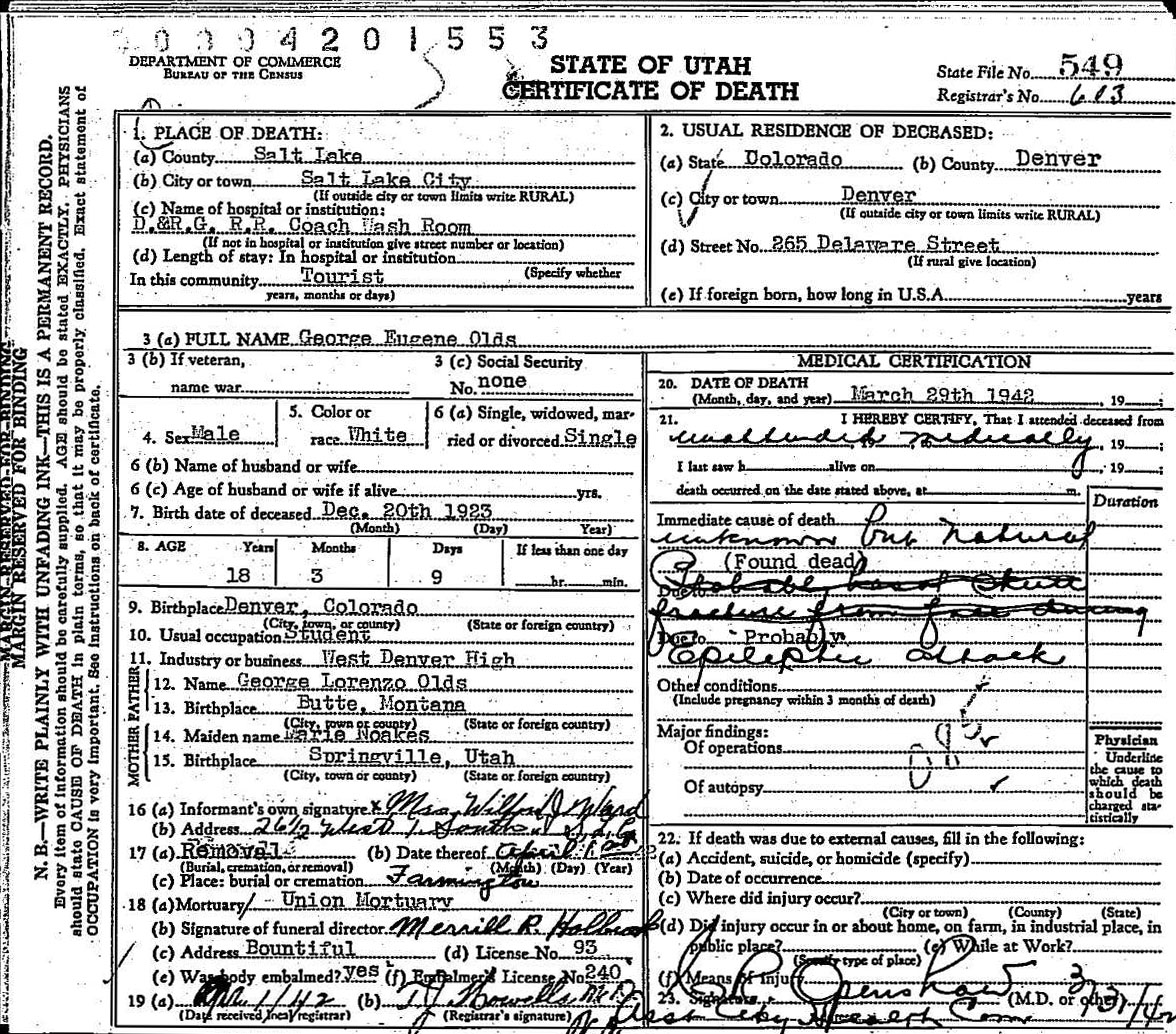 0 0 0 9 4 2 0 1 5 5 3
DEPARTMENT OF COMMERCE
BUREAU OF THE CENSUS
STATE OF UTAH
CERTIFICATE OF DEATH
State File No. 549
Registrar's No. 613
MARGIN RESERVED FOR BINDING
MARGIN RESERVED FOR BINDING
N. B.—WRITE PLAINLY WITH UNFADING INK—THIS IS A PERMANENT RECORD.
Every item of information should be carefully supplied. AGE should be stated EXACTLY. PHYSICIANS
should state CAUSE OF DEATH in plain terms, so that it may be properly classified. Exact statement of
OCCUPATION is very important. See instructions on back of certificate.
1. PLACE OF DEATH:
(a) County Salt Lake
(b) City or town Salt Lake City
(If outside city or town limits write RURAL)
(c) Name of hospital or institution:
D.&R.G. R.R. Coach Wash Room
(If not in hospital or institution give street number or location)
(d) Length of stay: In hospital or institution
(Specify whether
In this community Tourist
years, months or days)
2. USUAL RESIDENCE OF DECEASED:
(a) State Colorado (b) County Denver
(c) City or town Denver
(If outside city or town limits write RURAL)
(d) Street No. 265 Delaware Street
(If rural give location)
(e) If foreign born, how long in U.S.A. years
3 (a) FULL NAME George Eugene Olds
3 (b) If veteran,
name war
3 (c) Social Security
No. none
4. Sex Male
5. Color or
race White
6 (a) Single, widowed, mar-
ried or divorced Single
6 (b) Name of husband or wife
6 (c) Age of husband or wife if alive yrs.
7. Birth date of deceased Dec. 20th 1923
(Month) (Day) Year)
8. AGE Years Months Days If less than one day
18 3 9 hr. min.
9. Birthplace Denver, Colorado
(City, town, or county) (State or foreign country)
10. Usual occupation Student
11. Industry or business West Denver High
FATHER
12. Name George Lorenzo Olds
13. Birthplace Butte, Montana
(City, town or county) (State or foreign country)
MOTHER
14. Maiden name Marie Noakes
15. Birthplace Springville, Utah
(City, town or county) (State or foreign country)
16 (a) Informant's own signature x Mrs. Wilford J Ward
(b) Address 26 1/2 West 1 South
17 (a) Removal (b) Date thereof April 1
(Burial, cremation, or removal) (Month) (Day) (Year)
(c) Place: burial or cremation Farmington
18 (a) Mortuary Union Mortuary
(b) Signature of funeral director Merrill R. Holbrook
(c) Address Bountiful (d) License No. 93
(e) Was body embalmed? yes (f) Embalmer's License No. 240
19 (a) Apr 1/42 (b) T J Howells M.D.
(Date received local registrar) (Registrar's signature)
MEDICAL CERTIFICATION
20. DATE OF DEATH
(Month, day, and year) March 29th 1942, 19
21. I HEREBY CERTIFY, That I attended deceased from
unattended medically, 19
I last saw h alive on , 19
death occurred on the date stated above, at m.
Duration
Immediate cause of death
unknown but natural
(Found dead)
Due to Probably basal skull
fracture from fall during
Due to Probably
Epileptic attack
Other conditions
(Include pregnancy within 3 months of death)
Major findings:
Of operations
Of autopsy
Physician
Underline
the cause to
which death
should be
charged sta-
tistically
22. If death was due to external causes, fill in the following:
(a) Accident, suicide, or homicide (specify)
(b) Date of occurrence
(c) Where did injury occur?
(City or town) (County) (State)
(d) Did injury occur in or about home, on farm, in industrial place, in
public place? (e) While at Work?
(Specify type of place)
(f) Means of Injury
23. Signature Openshaw (M.D. or other) 3/31/42
Asst City Health Com